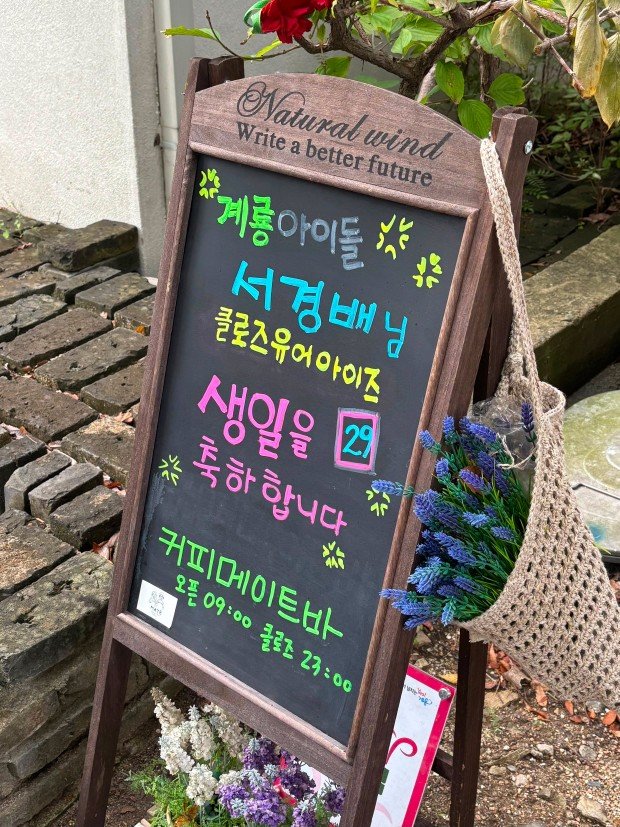 Natural wind
Write a better future
계룡아이돌
서경배님
클로즈유어아이즈
생일을 29
축하합니다
커피메이트바
오픈 09:00 클로즈 23:00